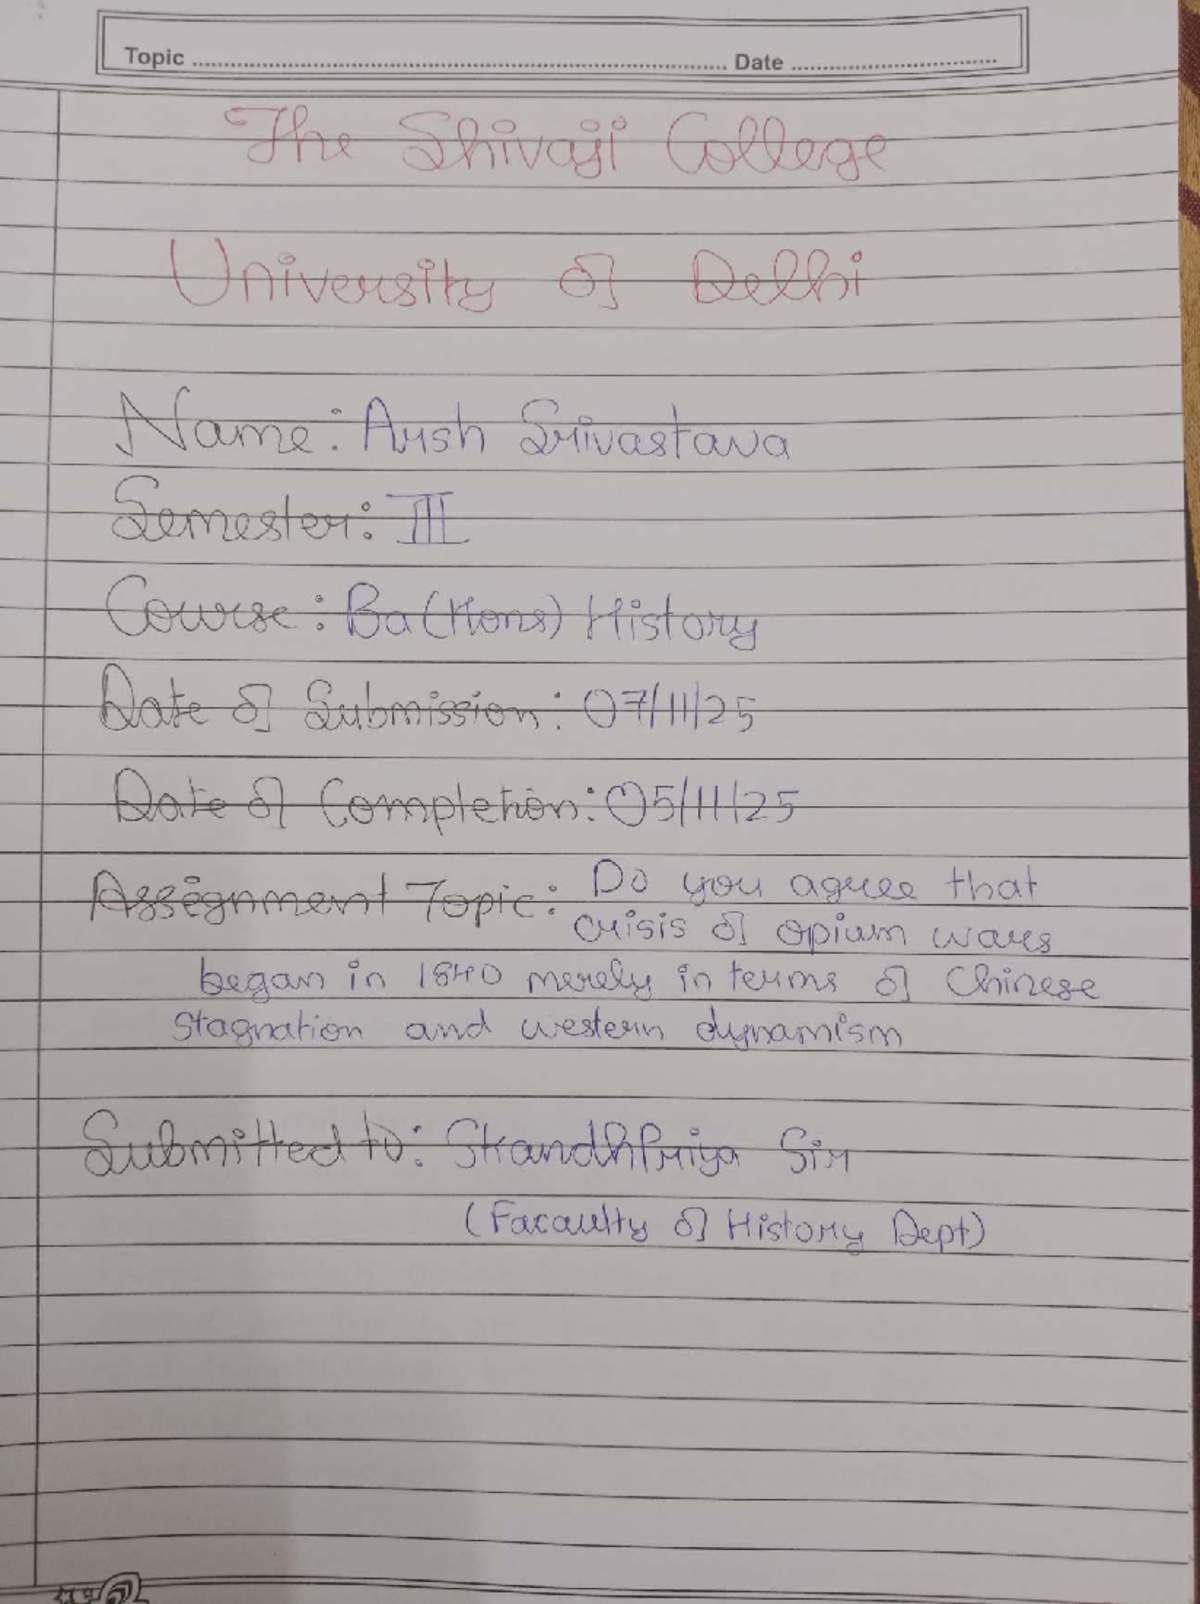 Topic ........................ Date ........................
The Shivaji College
University of Delhi
Name: Arsh Srivastava
Semester: III
Course: Ba (Hons) History
Date of Submission: 07/11/25
Date of Completion: 05/11/25
Assignment Topic: Do you agree that
crisis of opium wars
began in 1840 merely in terms of Chinese
stagnation and western dynamism
Submitted to: SkandhPriya Sir
(Facaulty of History Dept)